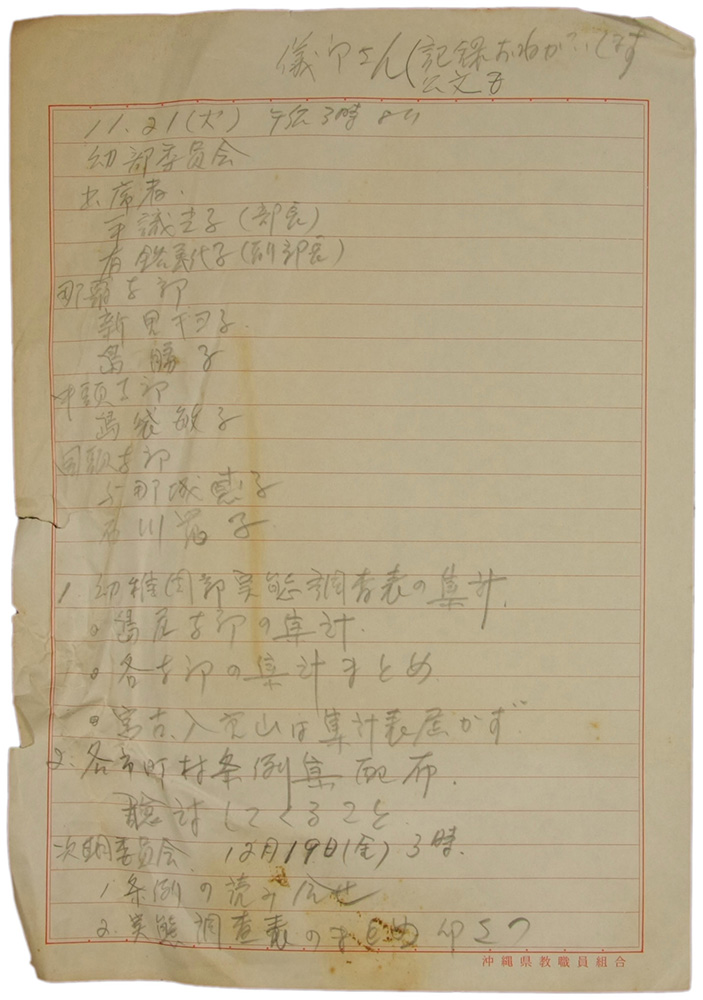 儀部さん(記録おねがいします
公文五
11.21(火) 午后3時より
幼部委員会
出席者.
平識圭子(部長)
有銘美代子(副部長)
那覇支部
新里千代子.
島勝子
中頭支部
島袋敏子
国頭支部
与那城恵子
石川子
1. 幼稚園部実態調査表の集計.
○島尻支部の集計.
○各支部の集計まとめ
○宮古、八重山は集計表届かず
2. 各市町村条例集配布.
検討してくること
次期委員会. 12月19日(金)3時.
1. 条例の読み合せ
2. 実態調査表のまとめ印さつ
沖縄県教職員組合